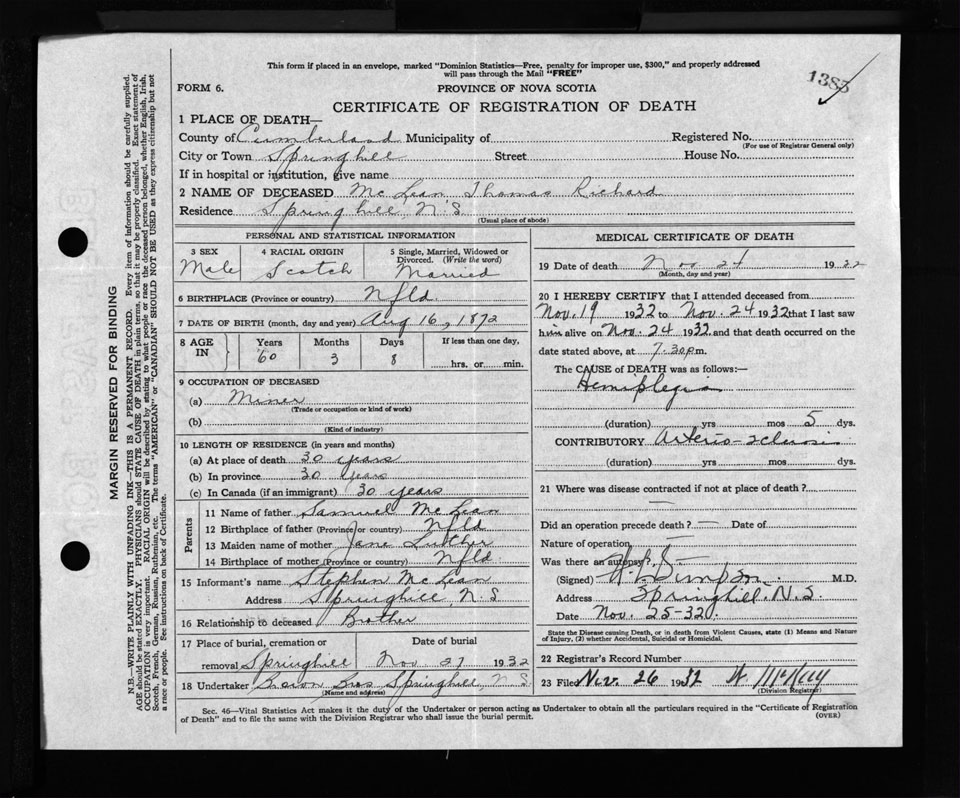 This form if placed in an envelope, marked "Dominion Statistics—Free, penalty for improper use, $300," and properly addressed
will pass through the Mail "FREE"
1383
FORM 6.
PROVINCE OF NOVA SCOTIA
CERTIFICATE OF REGISTRATION OF DEATH
1 PLACE OF DEATH—
County of Cumberland Municipality of Registered No.
(For use of Registrar General only)
City or Town Springhill Street House No.
If in hospital or institution, give name
2 NAME OF DECEASED McLean Thomas Richard
Residence Springhill, N.S.
(Usual place of abode)
PERSONAL AND STATISTICAL INFORMATION
3 SEX
Male
4 RACIAL ORIGIN
Scotch
5 Single, Married, Widowed or
Divorced. (Write the word)
Married
6 BIRTHPLACE (Province or country) Nfld.
7 DATE OF BIRTH (month, day and year) Aug 16, 1872
8 AGE IN
Years Months Days If less than one day,
60 3 8 hrs. or min.
9 OCCUPATION OF DECEASED
(a) Miner
(Trade or occupation or kind of work)
(b)
(Kind of industry)
10 LENGTH OF RESIDENCE (in years and months)
(a) At place of death 30 years
(b) In province 30 years
(c) In Canada (if an immigrant) 30 years
Parents
11 Name of father Samuel McLean
12 Birthplace of father (Province or country) Nfld
13 Maiden name of mother Jane Luther
14 Birthplace of mother (Province or country) Nfld
15 Informant's name Stephen McLean
Address Springhill, N.S.
16 Relationship to deceased Brother
17 Place of burial, cremation or
removal Springhill
Date of burial
Nov 27 1932
18 Undertaker Bros Springhill, N.S.
(Name and address)
MEDICAL CERTIFICATE OF DEATH
19 Date of death Nov 24 1932
(Month, day and year)
20 I HEREBY CERTIFY that I attended deceased from
Nov. 19 1932 to Nov. 24 1932 that I last saw
him alive on Nov. 24 1932 and that death occurred on the
date stated above, at 7.30 p.m.
The CAUSE of DEATH was as follows:—
Hemiplegia
(duration) yrs mos 5 dys.
CONTRIBUTORY Arterio-sclerosis
(duration) yrs. mos. dys.
21 Where was disease contracted if not at place of death? —
Did an operation precede death? — Date of
Nature of operation
Was there an autopsy?
(Signed) Simpson M.D.
Address Springhill. N.S.
Date Nov. 25-32
State the Disease causing Death, or in death from Violent Causes, state (1) Means and Nature
of Injury, (2) whether Accidental, Suicidal or Homicidal.
22 Registrar's Record Number
23 Filed Nov. 26 1932
(Division Registrar)
Sec. 46—Vital Statistics Act makes it the duty of the Undertaker or person acting as Undertaker to obtain all the particulars required in the "Certificate of Registration
of Death" and to file the same with the Division Registrar who shall issue the burial permit.
(OVER)
MARGIN RESERVED FOR BINDING
N.B.—WRITE PLAINLY WITH UNFADING INK—THIS IS A PERMANENT RECORD. Every item of information should be carefully supplied.
AGE should be stated EXACTLY. PHYSICIANS should STATE CAUSE OF DEATH in plain terms, so that it may be properly classified. Exact statement of
OCCUPATION is very important. RACIAL ORIGIN will be described by stating to what people or race the deceased person belonged, whether English, Irish,
Scotch, French, German, Russian, Ruthenian, etc. The terms "AMERICAN" or "CANADIAN" SHOULD NOT BE USED as they express citizenship but not
a race or people. See instructions on back of Certificate.